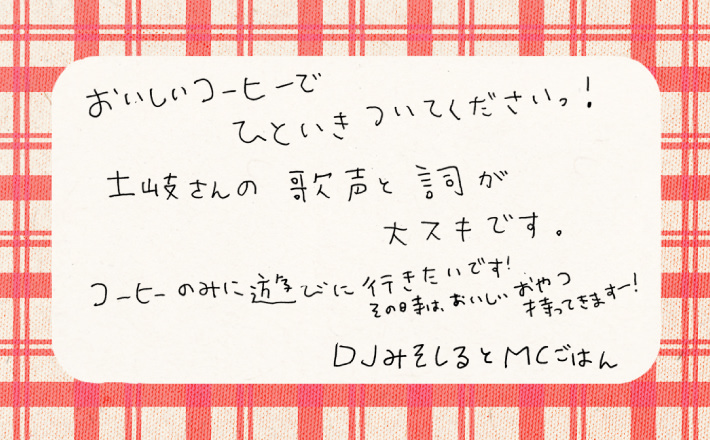 おいしいコーヒーで
ひといきついてくださいっ!
土岐さんの歌声と詞が
大スキです。
コーヒーのみに遊びに行きたいです!
その時は、おいしいおやつ
持ってきますー!
DJみそしるとMCごはん